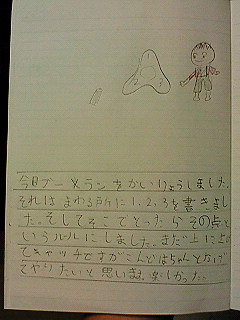 1
2
3
今日ブーメランをかいりょうしました。
それはまわる所に1,2,3を書きまし
た。そしてそこでとったらその点と
いうルールにしました。まだ上に
てキャッチですがこんどはちゃんとなげ
てやりたいと思います。楽しかった。